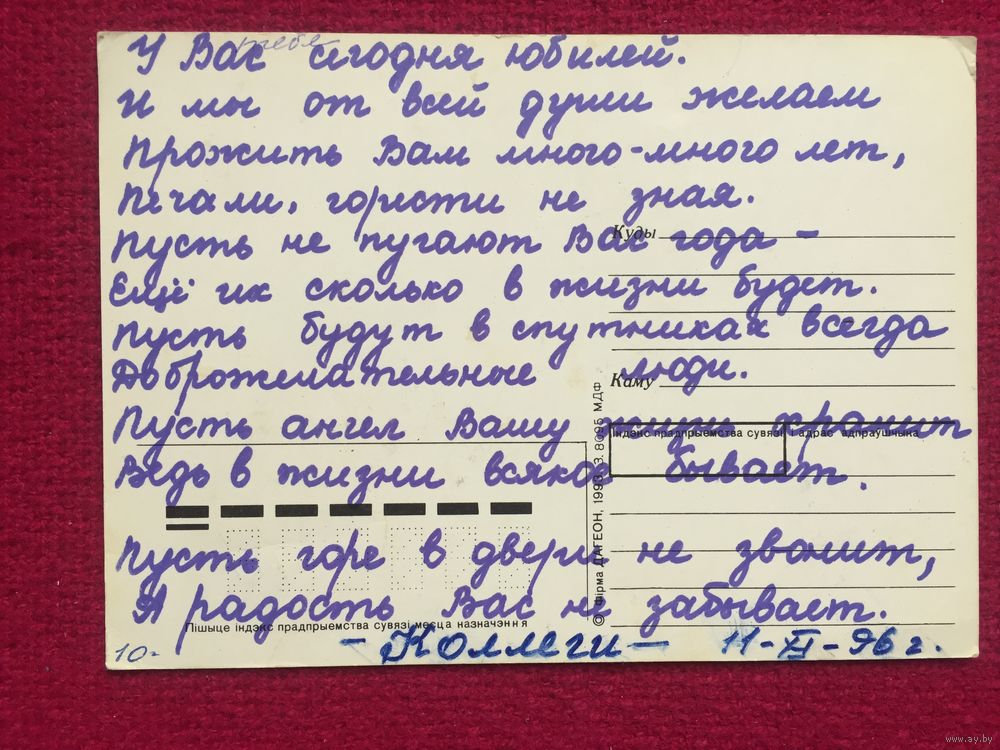 к тебе
У Вас сегодня юбилей.
И мы от всей души желаем
Прожить Вам много-много лет,
Печали, горести не зная.
Пусть не пугают Вас года -
Куды
Ещё их сколько в жизни будет.
Пусть будут в спутниках всегда
Доброжелательные люди.
Каму
Пусть ангел Вашу жизнь хранит
Індэкс прадпрыемства сувязі і адрас адпраўшчыка
Ведь в жизни всякое бывает.
Пусть горе в двери не звонит,
А радость Вас не забывает.
Пішыце індэкс прадпрыемства сувязі месца назначэння
- Коллеги - 11-XI-96 г.
10-
© Фірма ДАГЕОН, 1993. З. 8095 МДФ
www.ay.by